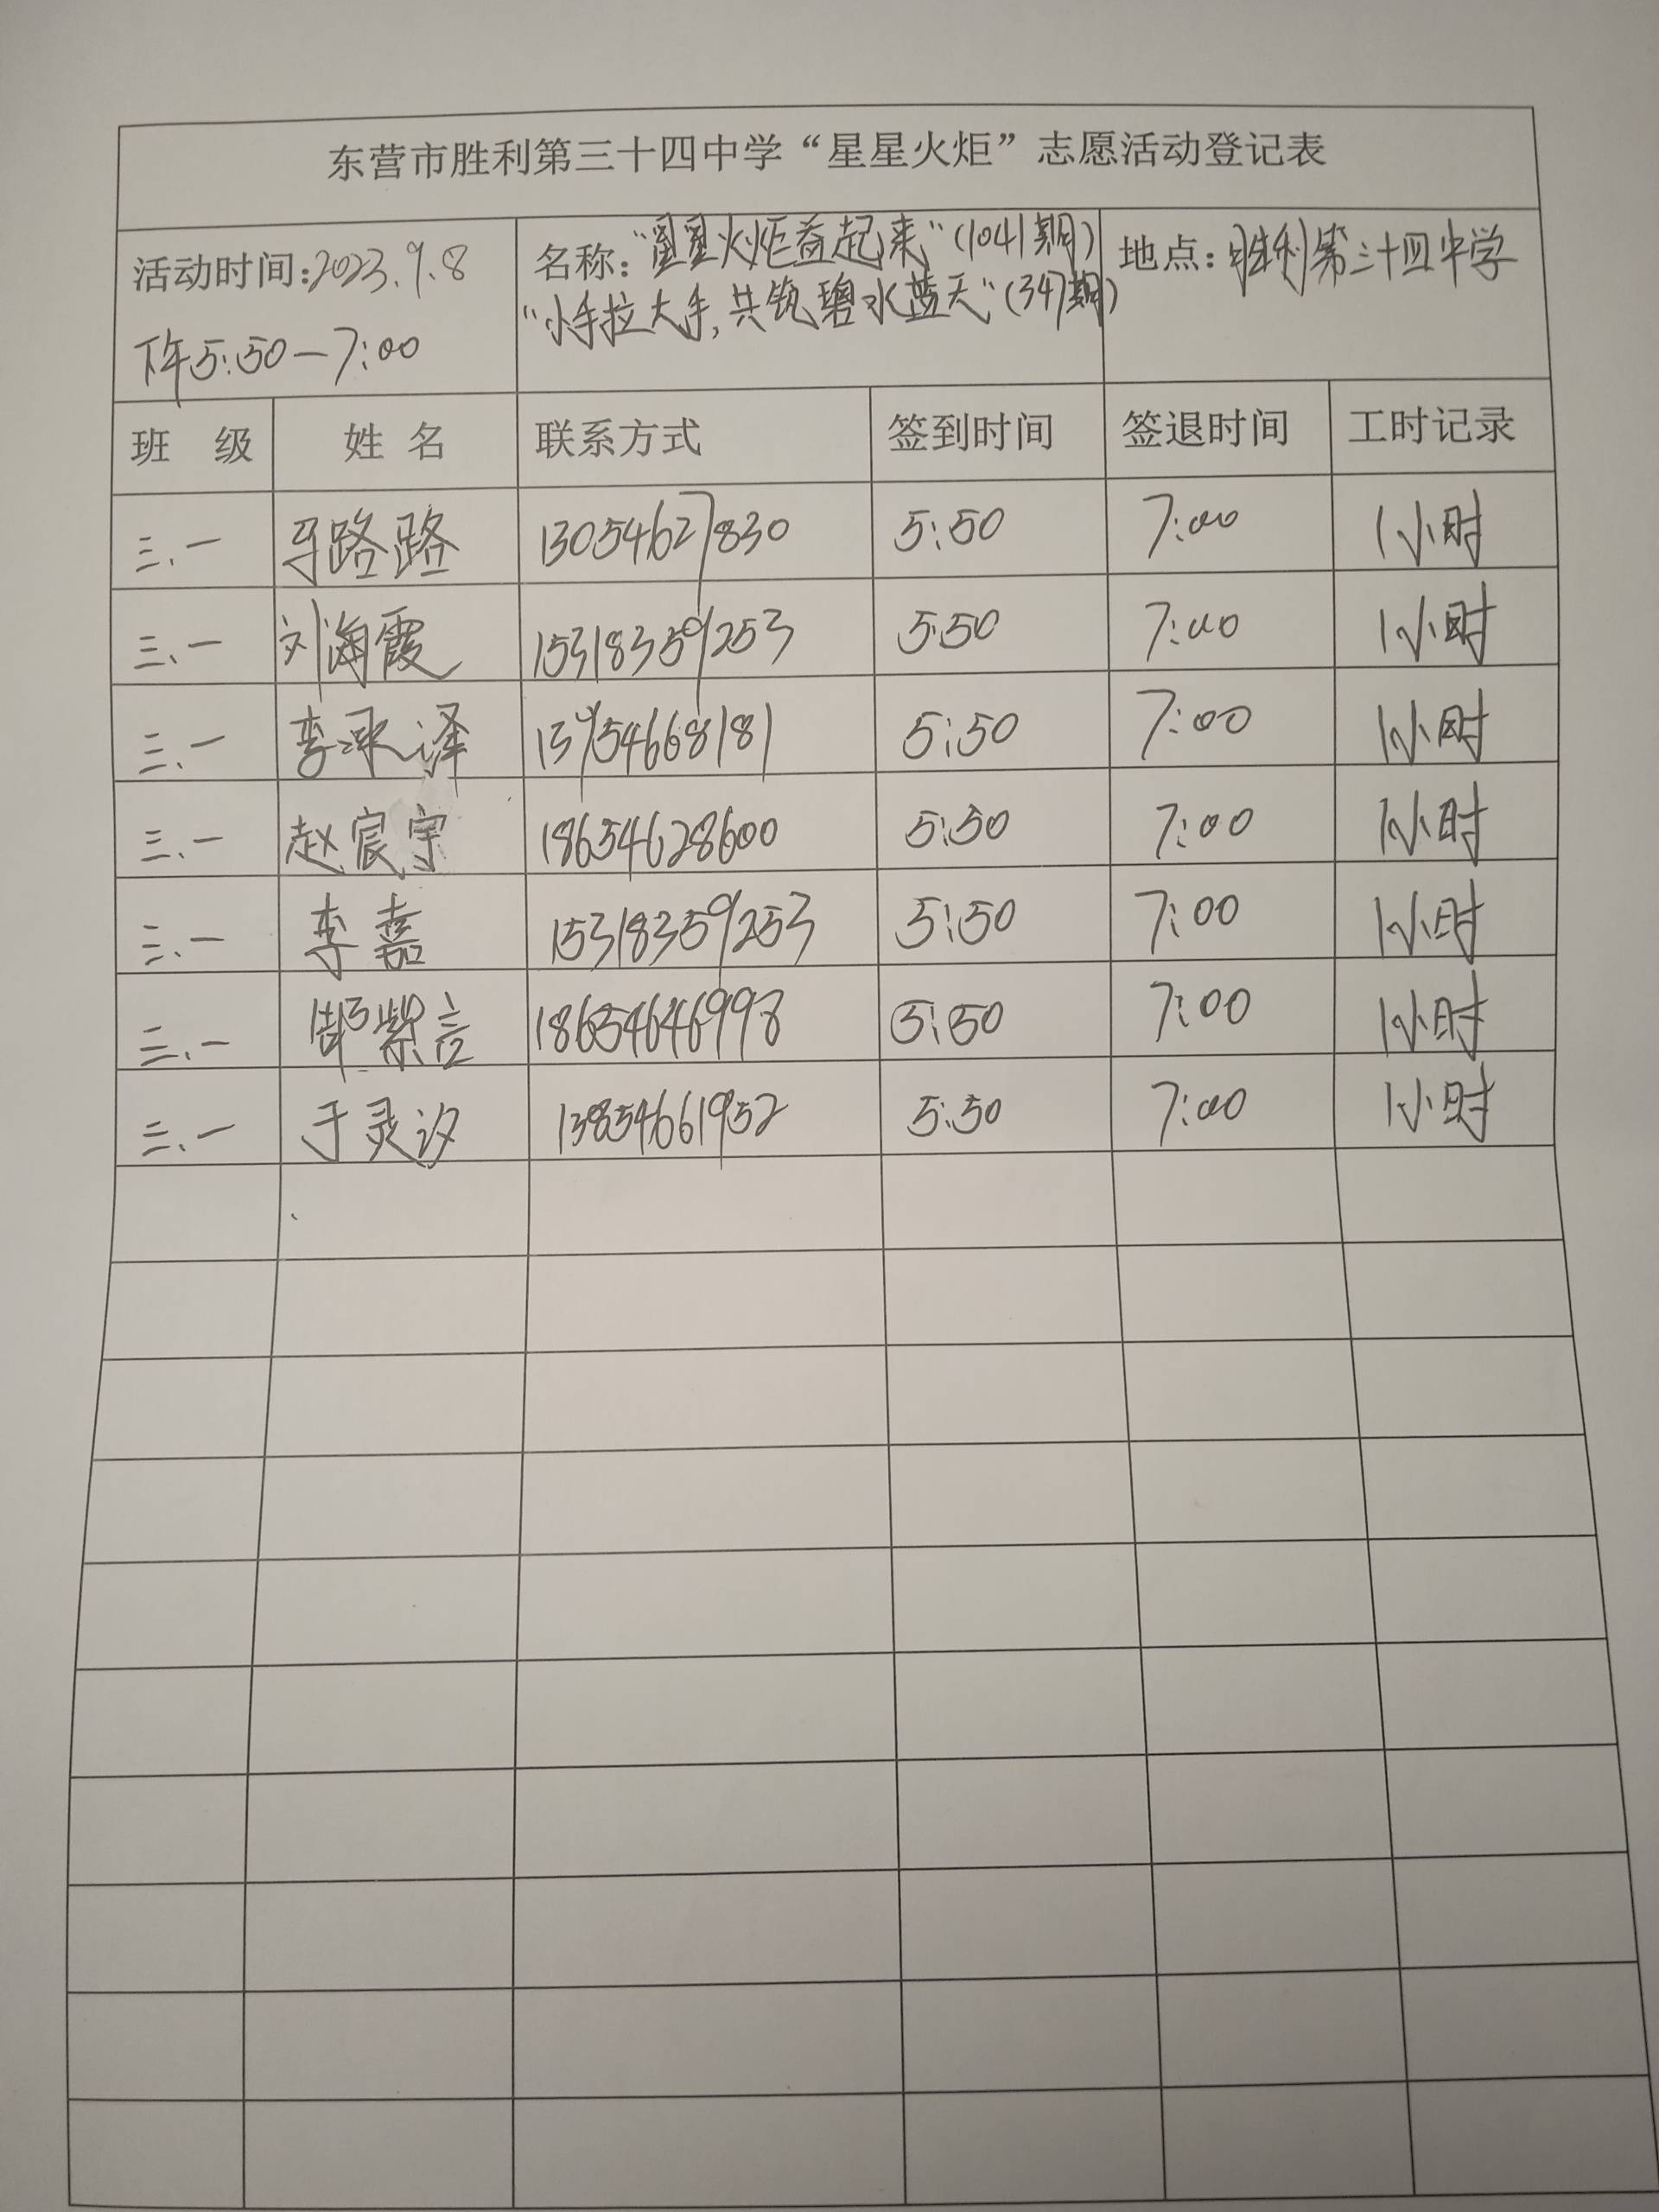 东营市胜利第三十四中学“星星火炬”志愿活动登记表
活动时间:2023.9.8
下午5:50—7:00
名称:“星星火炬益起来”(1041期)
“小手拉大手,共筑碧水蓝天”(347期)
地点:胜利第三十四中学
班 级 姓 名 联系方式 签到时间 签退时间 工时记录
三、一 马路路 13054627830 5:50 7:00 1小时
三、一 刘海霞 15318359253 5:50 7:00 1小时
三、一 李承泽 13954668181 5:50 7:00 1小时
三、一 赵宸宇 18654628600 5:50 7:00 1小时
三、一 李嘉 15318359253 5:50 7:00 1小时
三、一 紫言 18654646998 5:50 7:00 1小时
三、一 于灵汐 13854661952 5:50 7:00 1小时